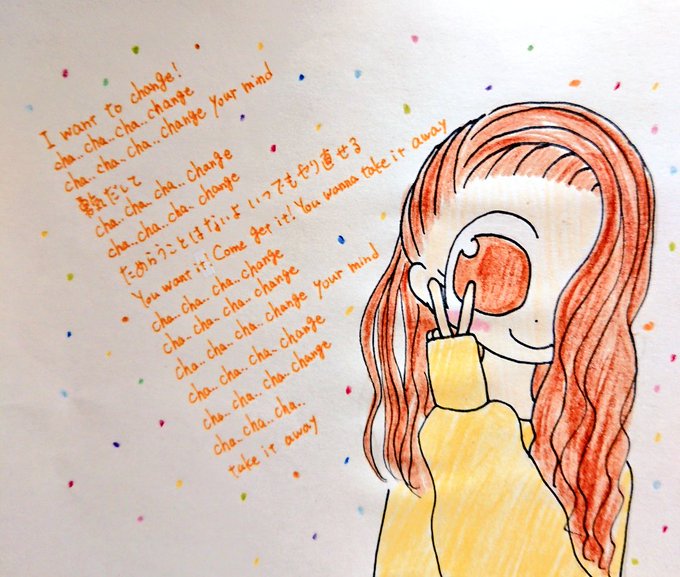 I want to change!
cha..cha..cha..change
cha..cha..cha...change your mind
勇気だして
cha..cha..cha...change
cha..cha..cha..change
ためらうことはないよ いつでもやり直せる
You want it! Come get it! You wanna take it away
cha..cha..cha...change
cha..cha..cha...change
cha..cha..cha..change your mind
cha..cha..cha..change
cha..cha..cha..change
cha..cha..cha..
take it away